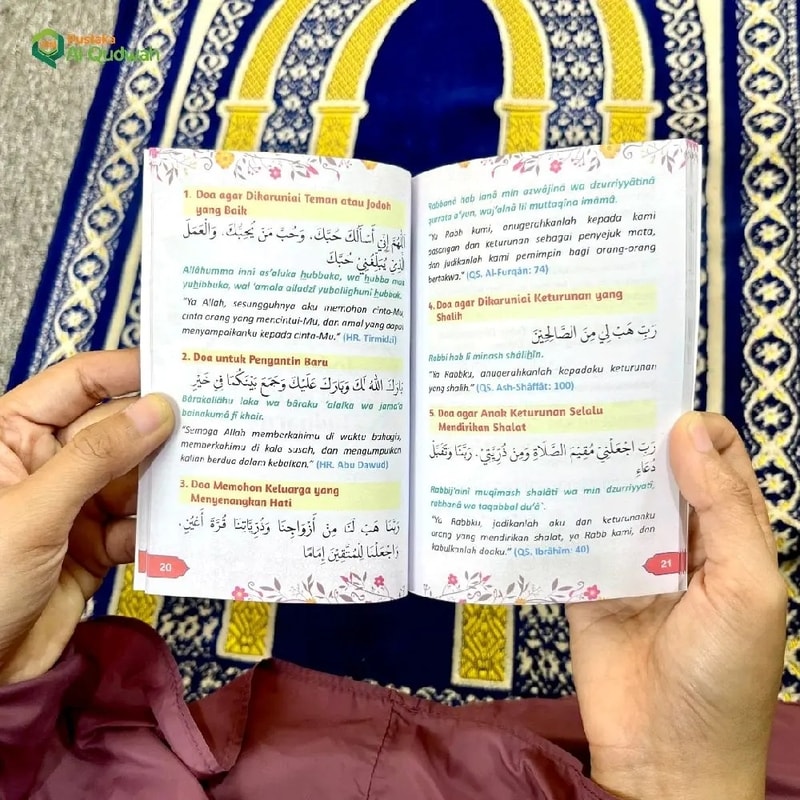 Pustaka
Al-Qudwah
1. Doa agar Dikaruniai Teman atau Jodoh
yang Baik
اَللّٰهُمَّ إِنِّي أَسْأَلُكَ حُبَّكَ، وَحُبَّ مَنْ يُحِبُّكَ، وَالْعَمَلَ
الَّذِيْ يُبَلِّغُنِيْ حُبَّكَ
Allâhumma innî as'aluka hubbaka, wa hubba man
yuhibbuka, wal 'amala alladzî yubalighunî hubbak.
"Ya Allah, sesungguhnya aku memohon cinta-Mu,
cinta orang yang mencintui-Mu, dan amal yang dapat
menyampaikanku kepada cinta-Mu." (HR. Tirmidzi)
2. Doa untuk Pengantin Baru
بَارَكَ اللّٰهُ لَكَ وَبَارَكَ عَلَيْكَ وَجَمَعَ بَيْنَكُمَا فِيْ خَيْرٍ
Bârakallâhu laka wa bâraka 'alaika wa jama'a
bainakumâ fî khair.
"Semoga Allah memberkahimu di waktu bahagia,
memberkahimu di kala susah, dan mengumpulkan
kalian berdua dalam kebaikan." (HR. Abu Dawud)
3. Doa Memohon Keluarga yang
Menyenangkan Hati
رَبَّنَا هَبْ لَنَا مِنْ أَزْوَاجِنَا وَذُرِّيَّاتِنَا قُرَّةَ أَعْيُنٍ،
وَاجْعَلْنَا لِلْمُتَّقِيْنَ إِمَامًا
20
Rabbanâ hab lanâ min azwâjinâ wa dzurriyyâtinâ
qurrata a'yun, waj'alnâ lil muttaqîna imâmâ.
"Ya Rabb kami, anugerahkanlah kepada kami
pasangan dan keturunan sebagai penyejuk mata,
dan jadikanlah kami pemimpin bagi orang-orang
bertakwa." (QS. Al-Furqân: 74)
4. Doa agar Dikaruniai Keturunan yang
Shalih
رَبِّ هَبْ لِيْ مِنَ الصَّالِحِيْنَ
Rabbi hab lî minash shâlihîn.
"Ya Rabbku, anugerahkanlah kepadaku keturunan
yang shalih." (QS. Ash-Shâffât: 100)
5. Doa agar Anak Keturunan Selalu
Mendirikan Shalat
رَبِّ اجْعَلْنِيْ مُقِيْمَ الصَّلَاةِ وَمِنْ ذُرِّيَّتِيْ، رَبَّنَا وَتَقَبَّلْ
دُعَاءِ
Rabbij'alnî muqîmash shalâti wa min dzurriyyatî,
rabbanâ wa taqabbal du'â`.
"Ya Rabbku, jadikanlah aku dan keturunanku
orang yang mendirikan shalat, ya Rabb kami, dan
kabulkanlah doaku." (QS. Ibrâhîm: 40)
21